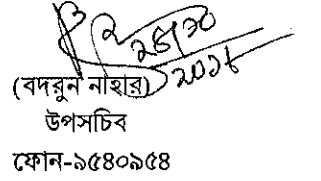 ২৫/১০
২০১৮
(বদরুন নাহার)
উপসচিব
ফোন-৯৫৪০৯৫৪